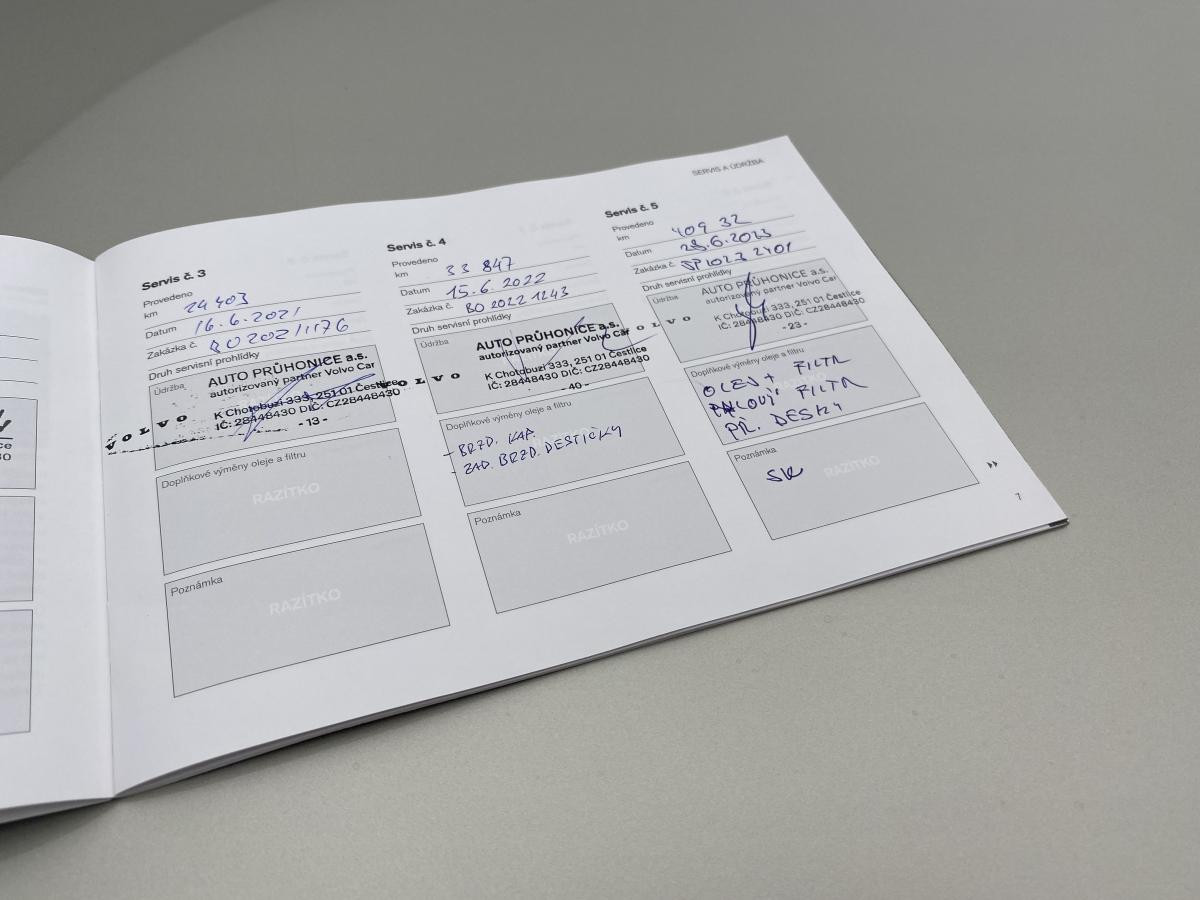 SERVIS A ÚDRŽBA
Servis č. 3
Provedeno
km 24 403
Datum 16.6.2021
Zakázka č. BO 2021 1176
Druh servisní prohlídky
Údržba
AUTO PRŮHONICE a.s.
autorizovaný partner Volvo Car
VOLVO
K Chotobuzi 333, 251 01 Čestlice
IČ: 28448430 DIČ: CZ28448430
- 13 -
Doplňkové výměny oleje a filtru
RAZÍTKO
Poznámka
RAZÍTKO
Servis č. 4
Provedeno
km 33 847
Datum 15.6.2022
Zakázka č. BO 2022 1243
Druh servisní prohlídky
Údržba
AUTO PRŮHONICE a.s.
autorizovaný partner Volvo Car
VOLVO
K Chotobuzi 333, 251 01 Čestlice
IČ: 28448430 DIČ: CZ28448430
- 40 -
Doplňkové výměny oleje a filtru
- BRZD. KAP.
- ZAD. BRZD. DESTIČKY
Poznámka
RAZÍTKO
Servis č. 5
Provedeno
km 409 32
Datum 28.6.2023
Zakázka č. 2401
Druh servisní prohlídky
Údržba
AUTO PRŮHONICE a.s.
autorizovaný partner Volvo Car
VOLVO
K Chotobuzi 333, 251 01 Čestlice
IČ: 28448430 DIČ: CZ28448430
- 23 -
Doplňkové výměny oleje a filtru
OLEJ + FILTR
FILTR
PŘ. DESKY
Poznámka
SK
RAZÍTKO
7